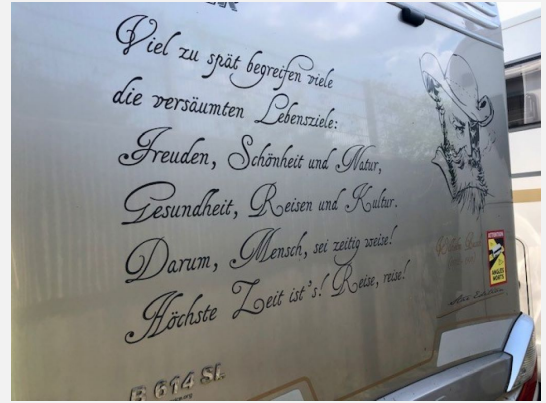 Viel zu spät begreifen viele
die versäumten Lebensziele:
Freuden, Schönheit und Natur,
Gesundheit, Reisen und Kultur.
Darum, Mensch, sei zeitig weise!
Höchste Zeit ist's! Reise, reise!
ATTENTION
ANGLES
MORTS
B 614 SL